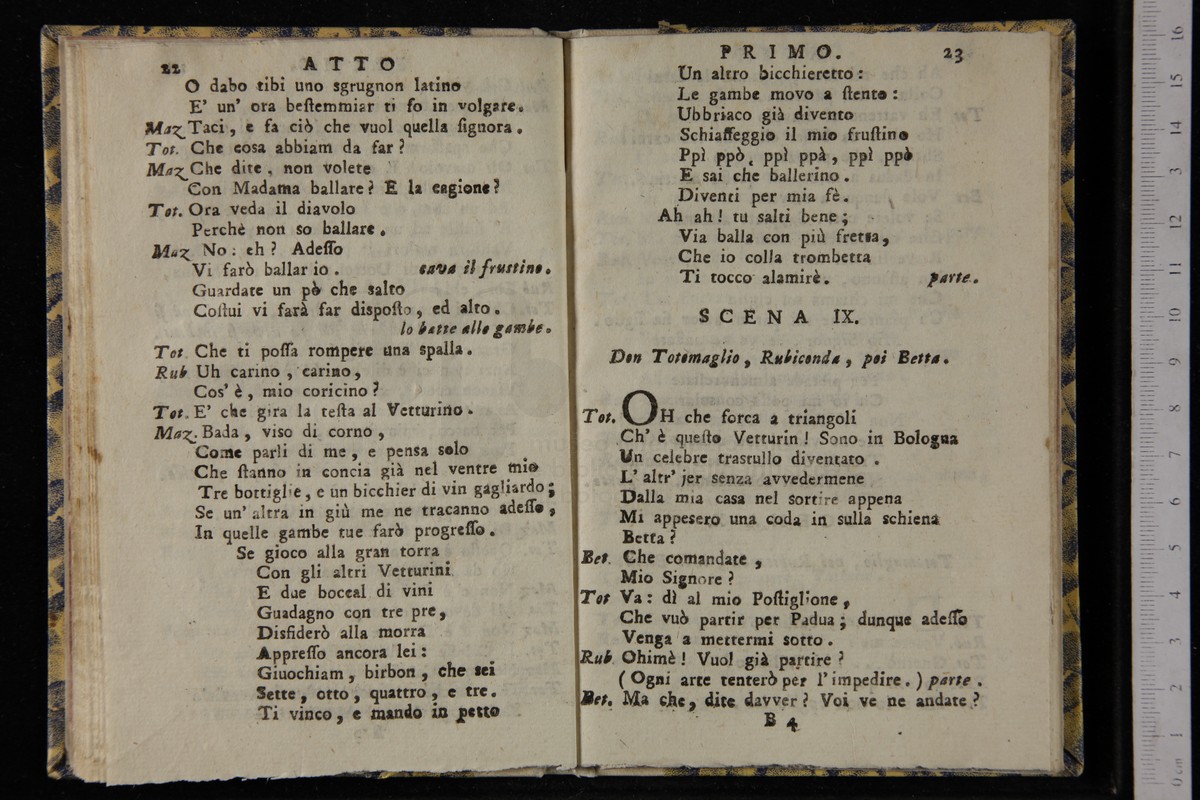 22 ATTO
O dabo tibi uno sgrugnon latino
E' un' ora beſtemmiar ti fo in volgare.
Maz. Taci, e fa ciò che vuol quella ſignora.
Tot. Che cosa abbiam da far?
Maz. Che dite, non volete
Con Madama ballare? E la cagione?
Tot. Ora veda il diavolo
Perchè non so ballare.
Maz. No: eh? Adeſſo
Vi farò ballar io. cava il fruſtino.
Guardate un pò che salto
Coſtui vi farà far dispoſto, ed alto.
lo batte alle gambe.
Tot. Che ti poſſa rompere una spalla.
Rub. Uh carino, carino,
Cos' è, mio coricino?
Tot. E' che gira la teſta al Vetturino.
Maz. Bada, viso di corno,
Come parli di me, e pensa solo
Che ſtanno in concia già nel ventre mio
Tre bottiglie, e un bicchier di vin gagliardo;
Se un' altra in giù me ne tracanno adeſſo,
In quelle gambe tue farò progreſſo.
Se gioco alla gran torra
Con gli altri Vetturini
E due boccal di vini
Guadagno con tre pre,
Disfiderò alla morra
Appreſſo ancora lei:
Giuochiam, birbon, che sei
Sette, otto, quattro, e tre.
Ti vinco, e mando in petto
PRIMO. 23
Un altro bicchieretto:
Le gambe movo a ſtento:
Ubbriaco già divento
Schiaffeggio il mio fruſtino
Ppì ppò, ppì ppà, ppì ppò
E sai che ballerino.
Diventi per mia fè.
Ah ah! tu salti bene;
Via balla con più fretta,
Che io colla trombetta
Ti tocco alamirè. parte.
SCENA IX.
Don Totomaglio, Rubiconda, poi Betta.
Tot. OH che forca a triangoli
Ch' è queſto Vetturin! Sono in Bologna
Un celebre trastullo diventato.
L' altr' jer senza avvedermene
Dalla mia casa nel sortire appena
Mi appesero una coda in sulla schiena
Betta?
Bet. Che comandate,
Mio Signore?
Tot Va: dì al mio Poſtiglione,
Che vuò partir per Padua; dunque adeſſo
Venga a mettermi sotto.
Rub. Ohimè! Vuol già partire?
(Ogni arte tenterò per l'impedire.) parte.
Bet. Ma che, dite davver? Voi ve ne andate?
B 4